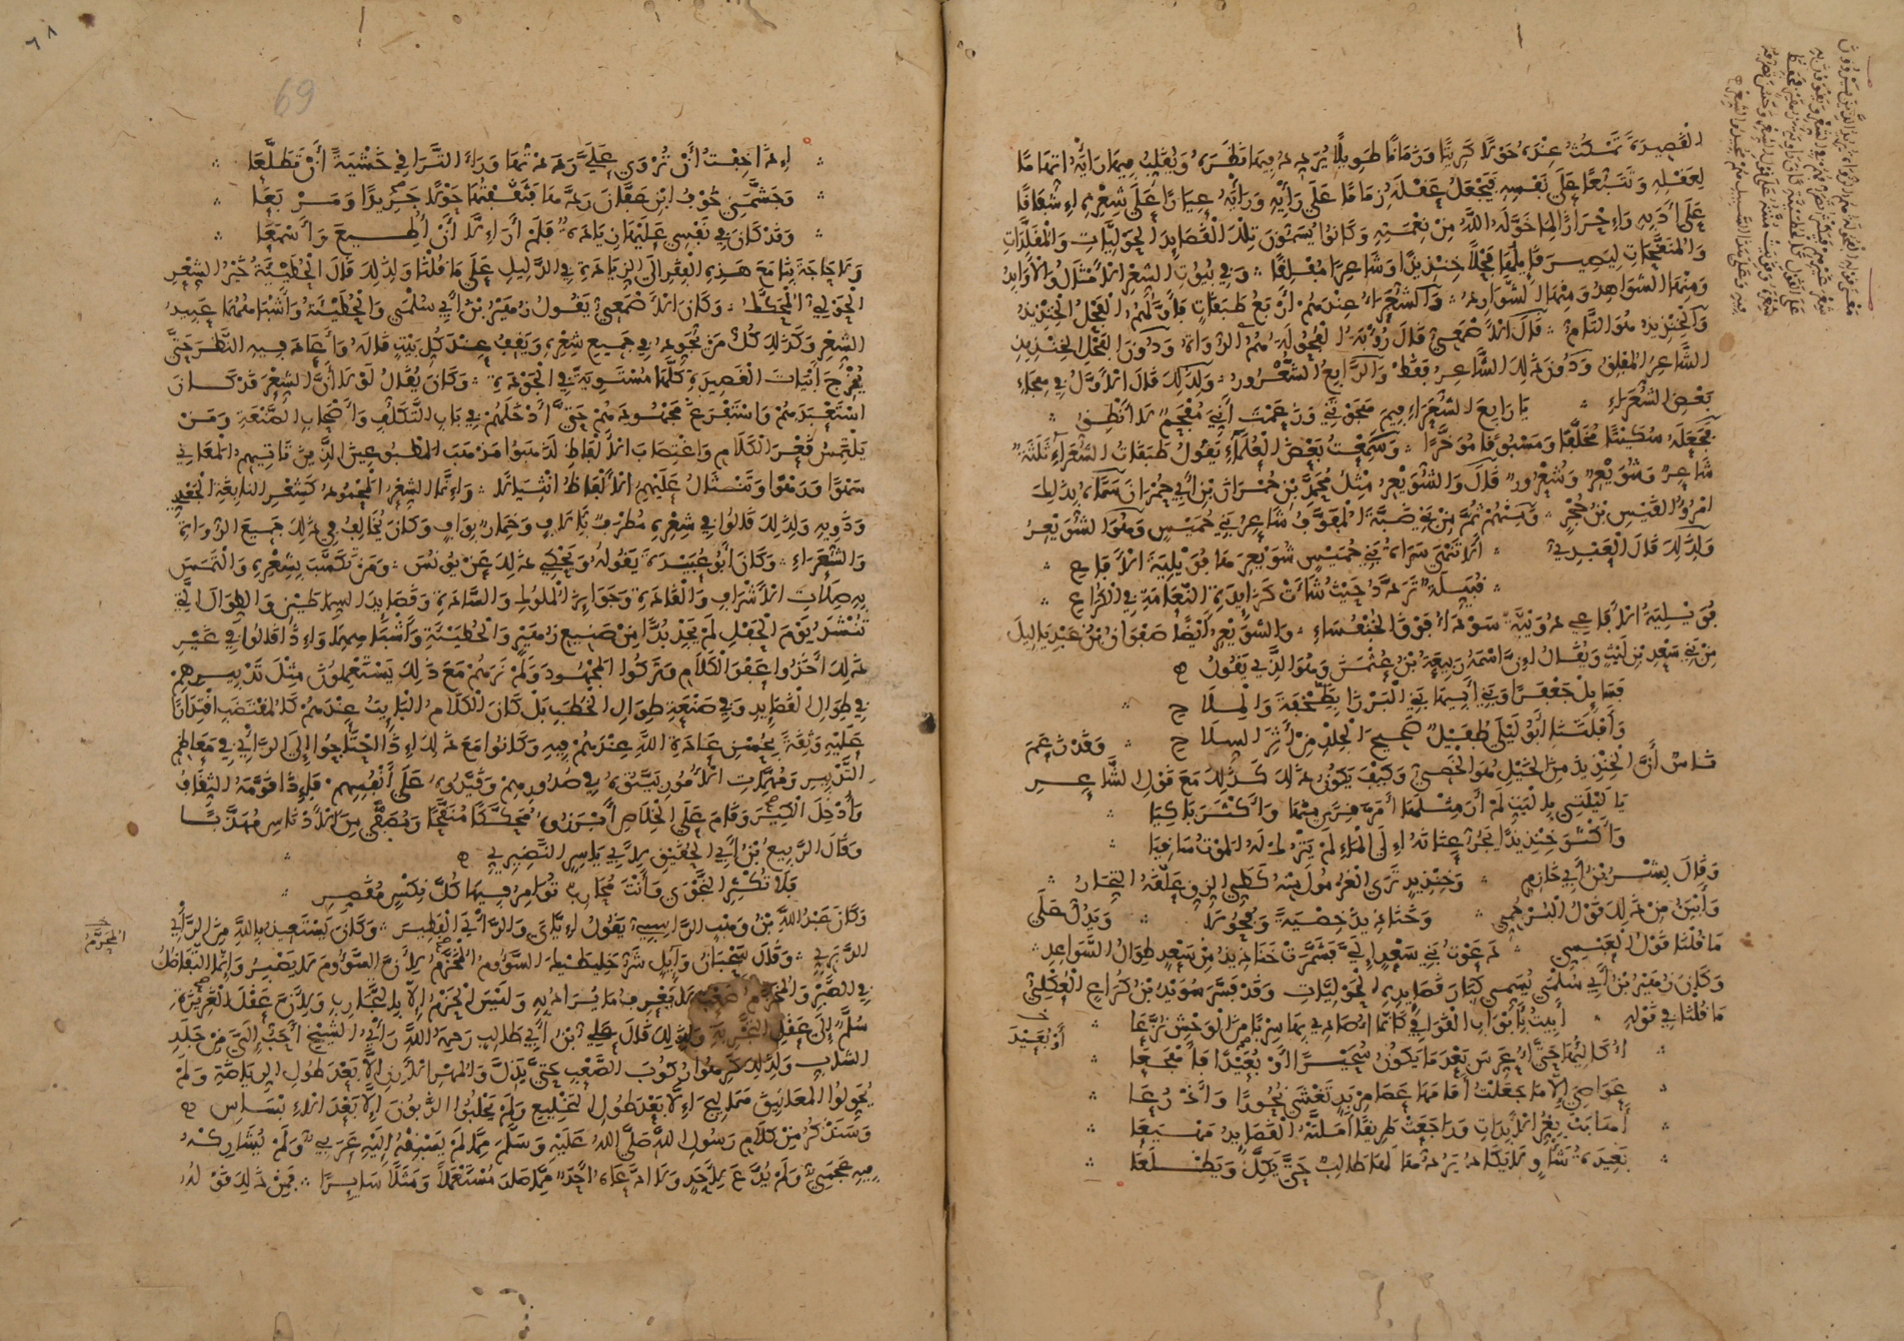 القصيدة تمكث عنده حولا كريتا وزمانا طويلا يردد فيها نظره ويقلب فيها رأيه اتهاما
لعقله وتتبعا على نفسه فيجعل عقله زماما على رأيه ورأيه عيارا على شعره إشفاقا
على أدبه وإحرازا لما خوله الله من نعمته وكانوا يسمون تلك القصايد الحوليات والمقلدات
والمنقحات ليصير قايلها فحلا خنذيذا وشاعرا مفلقا وفي بيوت الشعر الأمثال والأوابد
ومنها الشواهد ومنها الشوارد والشعراء عندهم أربع طبقات فأولهم الفحل الخنذيذ
والخنذيذ هو التام قال الأصمعي قال رؤبة الفحولة هم الرواة ودون الفحل الخنذيذ
الشاعر المفلق ودون ذلك الشاعر فقط والرابع الشعرور ولذلك قال الأول في هجاء
بعض الشعراء يا رابع الشعراء فيم هجوتني وزعمت أني مفحم لا أنطق
فجعله سكيتا مخلفا ومسبوقا مؤخرا وسمعت بعض العلماء يقول طبقات الشعراء ثلثة
شاعر وشويعر وشعرور قال والشويعر مثل محمد بن حمران بن أبي حمران سماه بذلك
امرؤ القيس بن حجر ومنهم ثم من بني ضبة المفوف شاعر بني حميس وهو الشويعر
ولذلك قال العبدي ألا تنهى سراة بني حميس شويعرها فويلية الأفاعي
قبيلة تردد حيث شاءت كزايدة النعامة في الكراع
فويلية الأفاعي دويبة سوداء فوق الخنفساء والشويعر أيضا صفوان بن عبد ياليل
من بني سعد بن ليث ويقال إن اسمه ربيعة بن عثمن وهو الذي يقول
فسايل جعفرا وبني أبيها بني البزرى بطخفة والملاح
وأفلتنا أبو ليلى طفيل صحيح الجلد من أثر السلاح وقد زعم
ناس أن الخنذيذ من الخيل هو الخصي وكيف يكون ذلك كذلك مع قول الشاعر
يا ليلتي بالبيت لم أر مثلها أمر منها وأكثر باكيا
وأكثر خنذيذا يجر عنانه إلى الماء لم يترك له الموت ساقيا
وقال بشر بن أبي خازم وخنذيذ ترى الغرمول منه كطي الزق علقه التجار
وأبين من ذلك قول البرجمي وخناذيذ خصية وفحولا ويدل على
ما قلنا قول القيسي دعوت بني سعد إلي فشمرت خناذيذ من سعد طوال السواعد
وكان زهير بن أبي سلمى يسمي كبار قصايده الحوليات وقد فسر سويد بن كراع العكلي
ما قلنا في قوله أبيت بأبواب القوافي كأنما أصادي بها سربا من الوحش نزعا
أكاليها حتى أعرس بعد ما يكون سحيرا أو بعيدا فأهجعا
أو بعيد
عواصي إلا ما جعلت أمامها عصا مربد تغشى نحورا وأذرعا
أهابت بغر الآبدات وراجعت طريقا أملته القصايد مهيعا
بعيدة شأو لا يكاد يردها لها طالب حتى يكل ويظلعا
69
٦٨
إذا خفت أن تروى علي رددتها وراء التراقي خشية أن تطلعا
وجشمني خوف ابن عفان ردها فثقفتها حولا جريدا ومربعا
وقد كان في نفسي عليها زيادة فلم أر إلا أن أطيع وأسمعا
ولا حاجة بنا مع هذه الفقر إلى الزيادة في الدليل على ما قلنا ولذلك قال الحطيئة خير الشعر
الحولي المحكك وكان الأصمعي يقول زهير بن أبي سلمى والحطيئة وأشباههما عبيد
الشعر وكذلك كل من يجود في جميع شعره ويقف عند كل بيت قاله وأعاد فيه النظر حتى
يخرج أبيات القصيدة كلها مستوية في الجودة وكان يقال لولا أن الشعر قد كان
استعبدهم واستفرغ مجهودهم حتى أدخلهم في باب التكلف وأصحاب الصنعة ومن
يلتمس قهر الكلام واغتصاب الألفاظ لذهبوا مذهب المطبوعين الذين تأتيهم المعاني
سهوا ورهوا وتنثال عليهم الألفاظ انثيالا وإنما الشعر المحمود كشعر النابغة الجعدي
ورؤبة ولذلك قالوا في شعره مطرف بآلاف وخمار بواف وكان يخالف في ذلك جميع الرواة
والشعراء وكان أبو عبيدة يقوله ويحكي ذلك عن يونس ومن تكسب بشعره والتمس
به صلات الأشراف والقادة وجوايز الملوك والسادة وقصايد السماطين والطوال التي
تنشد يوم الحفل لم يجد بدا من صنيع زهير والحطيئة وأشباههما وإذا قالوا في غير
ذلك أخذوا عفو الكلام وتركوا المجهود ولم نرهم مع ذلك يستعملون مثل تدبيرهم
في طوال القصايد وفي صنعة طوال الخطب بل كان الكلام البايت عندهم كالمقتضب اقتدارا
عليه وثقة بحسن عادة الله عندهم فيه وكانوا مع ذلك إذا احتاجوا إلى الرأي في معاظم
التدبير ومهمات الأمور بيتوه في صدورهم وقيدوه على أنفسهم فإذا قومه الثقاف
وأدخل الكير وقام على الخلاص أبرزوه محككا منقحا ومصفى من الأدناس مهذبا
وقال الربيع بن أبي الحقيق لأبي ياسر النضيري
فلا تكثر النجوى وأنت محارب تؤامر فيها كل نكس مقصر
وكان عبد الله بن وهب الراسبي يقول إياي والرأي الفطير وكان يستعيذ بالله من الرأي
الدبري وقال سحبان وايل شر خليطيك السؤوم المحزم لأن السؤوم لا يصبر وإنما التفاضل
المحزم
في الصبر والمحزم صعب لا يعرف ما يراد به وليس الحزم إلا بالتجارب ولأن عقل الغريزة
سلم إلى عقل التجربة ولذلك قال علي بن أبي طالب رحمه الله رأي الشيخ أحب إلي من جلد
الشاب ولذلك كرهوا ركوب الصعب حتى يذل والمهر الأرن إلا بعد طول الرياضة ولم
يحولوا المعانيق هماليج إلا بعد طول التخليع ولم يحلبوا الزبون إلا بعد الإبساس
وسنذكر من كلام رسول الله صلى الله عليه وسلم مما لم يسبقه إليه عربي ولم يشاركه
فيه عجمي ولم يدع لأحد ولا ادعاه أحد مما صار مستعملا ومثلا سايرا فمن ذلك قوله